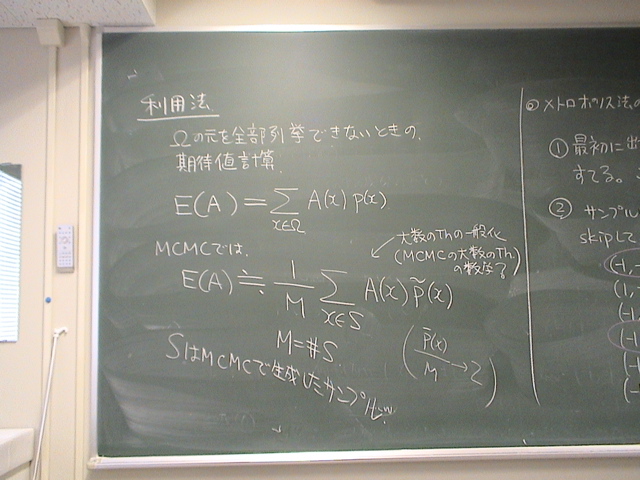 利用法
Ωの元を全部引挙できないときの、
期待値計算.
E(A) = Σ A(x) p(x)
x∈Ω
MCMCでは、
大数のThの一般化
(MCMCの大数のTh)
E(A) ≒ 1/M Σ A(x) p̃(x)
x∈S
M = #S
(p̃(x)/M → Z)
SはMCMCで生成したサンプル
◎メトロポリス法の
① 最初に出
すてる。
② サンプル
skipして
(-1,
(1,
(-1,
(-1
(-